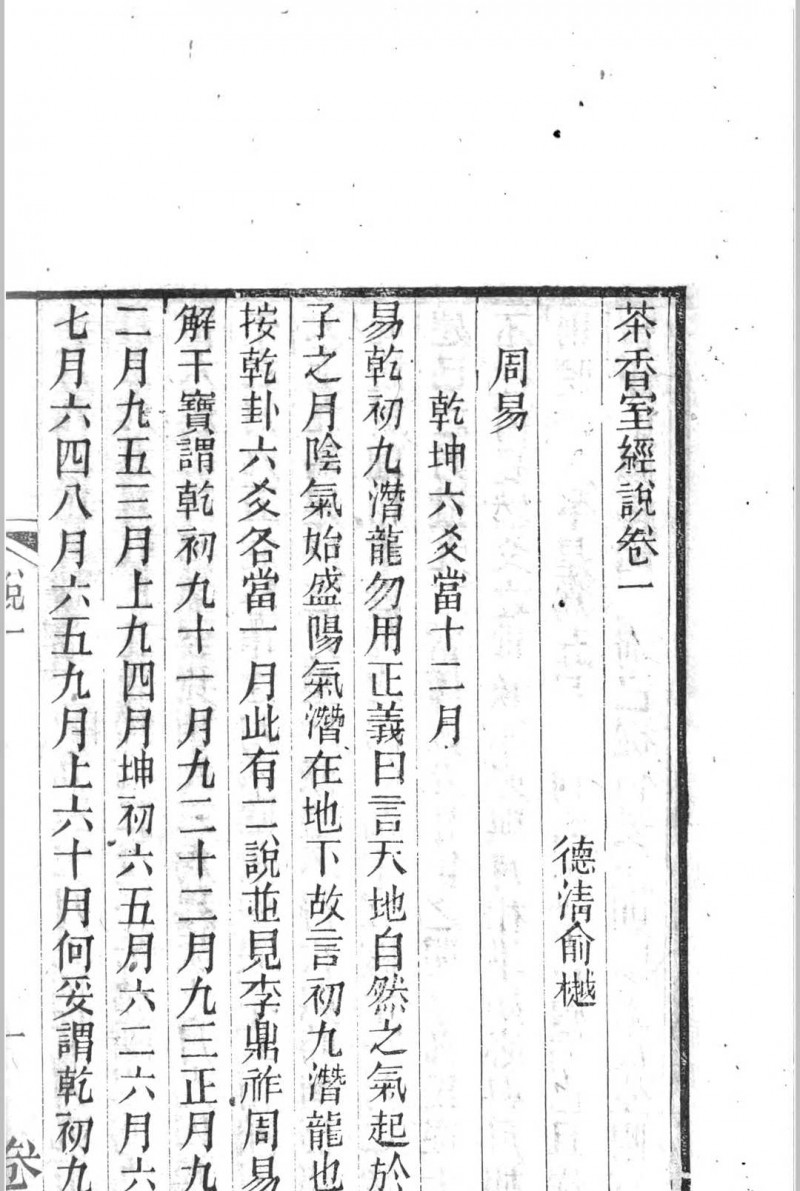 茶香室經說卷一
德清俞樾
周易
乾坤六爻當十二月
易乾初九潛龍勿用正義曰言天地自然之氣起於
子之月陰氣始盛陽氣潛在地下故言初九潛龍也
按乾卦六爻各當一月此有二說並見李鼎祚周易
解干寶謂乾初九十一月九二十二月九三正月九
二月九五三月上九四月坤初六五月六二六月六
七月六四八月六五九月上六十月何妥謂乾初九
說一
一
卷